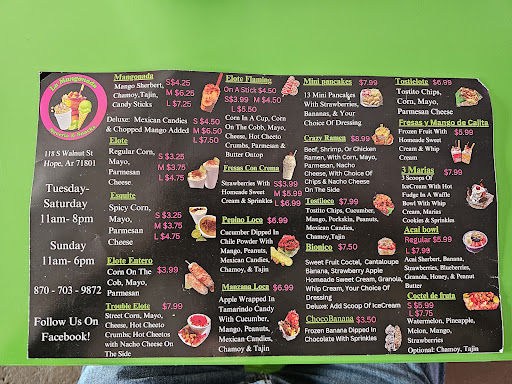 La Mangonada
Nevería & Snacks
118 S Walnut St
Hope, Ar 71801
Tuesday-
Saturday
11am- 8pm
Sunday
11am- 6pm
870 - 703 - 9872
Follow Us On
Facebook!
Mangonada
Mango Sherbert,
Chamoy,Tajin,
Candy Sticks
S$4.25
M $6.25
L $7.25
Deluxe: Mexican Candies
& Chopped Mango Added
$4.50
$6.50
L $7.50
Elote
Regular Corn,
Mayo,
Parmesan
Cheese
S $3.25
M $3.75
L $4.75
Esquite
Spicy Corn,
Mayo,
Parmesan
Cheese
S $3.25
M $3.75
L $4.75
Elote Entero
Corn On The
Cob, Mayo,
Parmesan
$3.99
Trouble Elote $7.99
Street Corn, Mayo,
Cheese, Hot Cheeto
Crumbs; Hot Cheetos
with Nacho Cheese On
The Side
Elote Flaming
On A Stick $4.50
S$3.99 M $4.50
L $5.50
Corn In A Cup, Corn
On The Cobb, Mayo,
Cheese, Hot Cheeto
Crumbs, Parmesan &
Butter Ontop
Fresas Con Crema
Strawberries With
Homeade Sweet
Cream & Sprinkles
S$3.99
M $5.99
L $6.99
Pepino Loco $6.99
Cucumber Dipped In
Chile Powder With
Mango, Peanuts,
Mexican Candies,
Chamoy, & Tajin
Manzana Loca $6.99
Apple Wrapped In
Tamarindo Candy
With Cucumber,
Mango, Peanuts,
Mexican Candies,
Chamoy & Tajin
Mini pancakes $7.99
13 Mini Pancakes
With Strawberries,
Bananas, & Your
Choice Of Dressing
Crazy Ramen $8.99
Beef, Shrimp, Or Chicken
Ramen, With Corn, Mayo,
Parmesan, Nacho
Cheese, With Choice Of
Chips & Nacho Cheese
On The Side
Tostiloco $7.99
Tostito Chips, Cucumber,
Mango, Porkskis, Peanuts,
Mexican Candies,
Chamoy,Tajin
Bionico $7.50
Sweet Fruit Coctel, Cantaloupe
Banana, Strawberry Apple
Homemade Sweet Cream, Granola,
Whip Cream, Your Choice Of
Dressing
Deluxe: Add Scoop Of IceCream
ChocoBanana $3.50
Frozen Banana Dipped In
Chocolate With Sprinkles
Tostielote $6.99
Tostito Chips,
Corn, Mayo,
Parmesan Cheese
Fresas y Mango de Cajita
Frozen Fruit With
Homeade Sweet
Cream & Whip
Cream
$5.99
3 Marias $7.99
3 Scoops Of
IceCream With Hot
Fudge In A Waffle
Bowl With Whip
Cream, Marias
Cookies & Sprinkles
Acai bowl
Regular $5.99
L $7.99
Acai Sherbert, Banana,
Strawberries, Blueberries,
Granola, Honey, & Penut
Butter
Coctel de fruta
S $5.99
L $7.75
Watermelon, Pineapple,
Melon, Mango,
Strawberries
Optional: Chamoy, Tajin